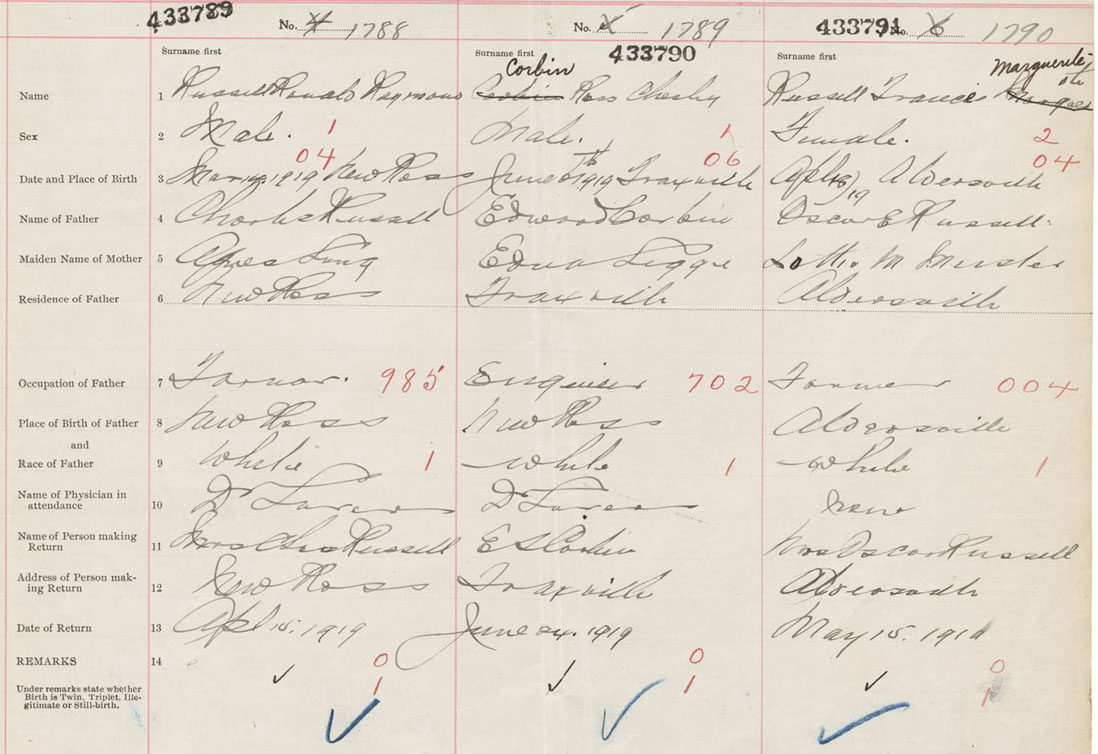 433789 No. 4 1788 No. 5 1789 433791 No. 6 1790
Surname first Surname first 433790 Surname first
Corbin Marguerite
Name 1 Russell Ronald Raymond Corbin Ross Chesley Russell Frances
Sex 2 Male. 1 Male. 1 Female. 2
04 06 04
Date and Place of Birth 3 Mar 14, 1919 New Ross June 6th 1919 Fraxville Apl 18, 19 Aldersville
Name of Father 4 Charles Russell Edward Corbin Oscar E Russell.
Maiden Name of Mother 5 Agnes Edna Leggie Lottie M.
Residence of Father 6 New Ross Fraxville Aldersville
Occupation of Father 7 Farmer. 985 702 Farmer 004
Place of Birth of Father 8 New Ross New Ross Aldersville
and
Race of Father 9 White 1 White 1 White 1
Name of Physician in
attendance 10 Dr Dr None
Name of Person making
Return 11 Mrs Chas Russell E S Corbin Mrs Oscar Russell
Address of Person mak-
ing Return 12 New Ross Fraxville Aldersville
Date of Return 13 Apl 15. 1919 June 24. 1919 May 15. 1919
REMARKS 14 0 0 0
Under remarks state whether
Birth is Twin, Triplet, Ille-
gitimate or Still-birth.
1 1 1